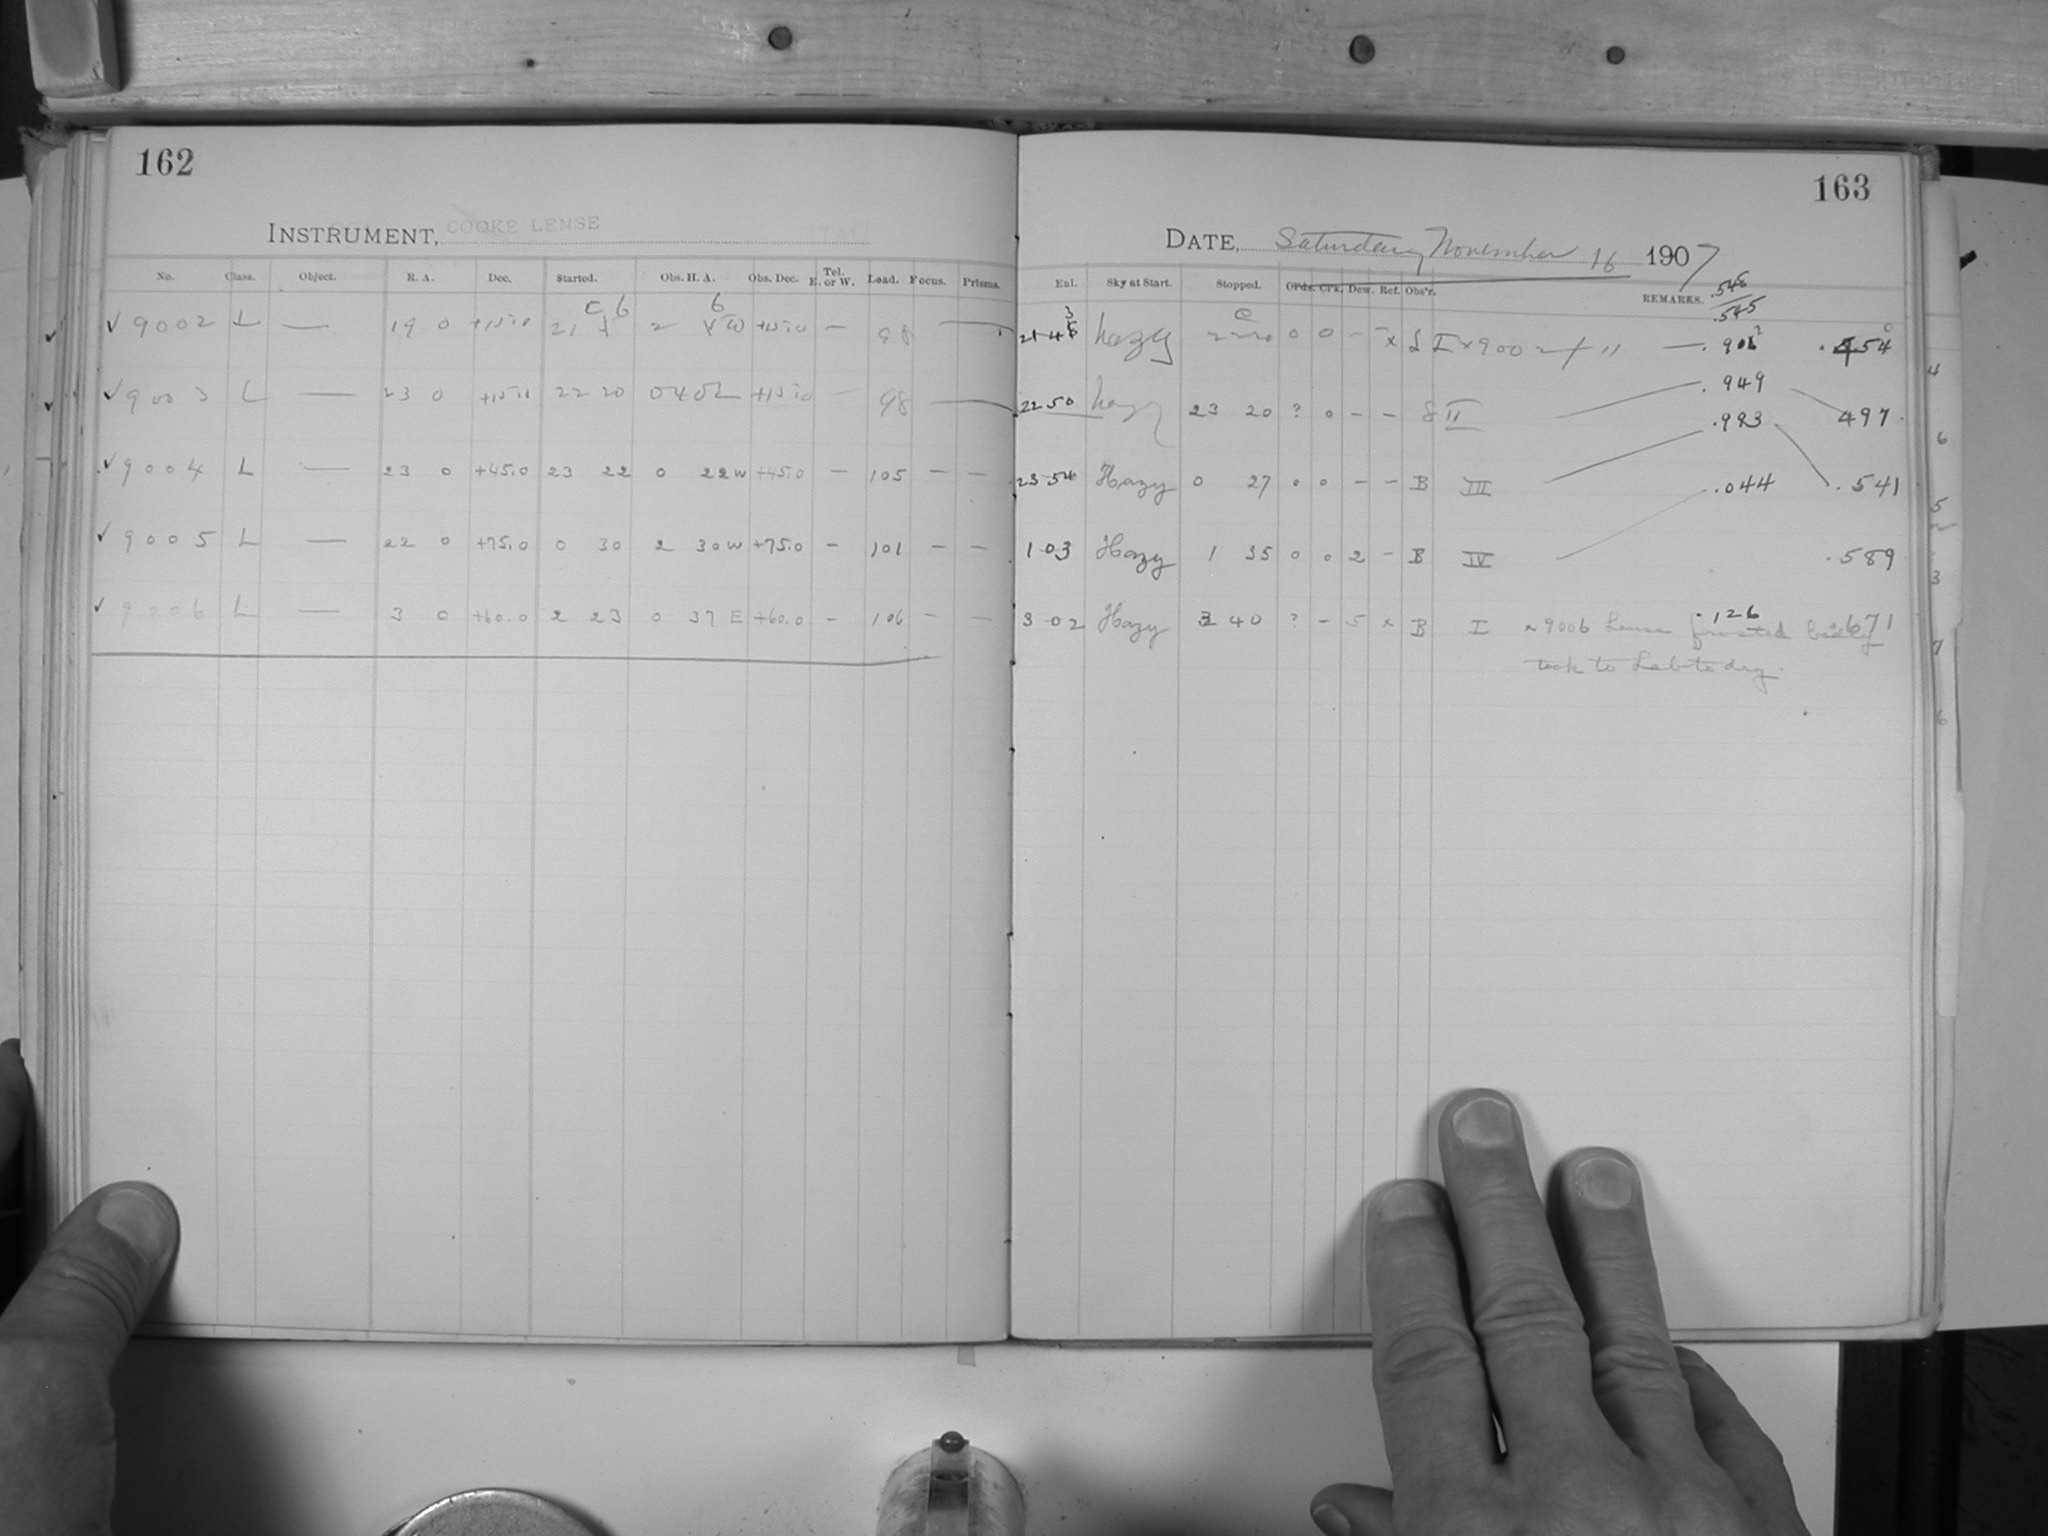 162
INSTRUMENT, COOKE LENSE
No. Class. Object. R. A. Dec. Started. Obs. H. A. Obs. Dec. Tel. E. or W. Load. Focus. Prisms.
✓ 9002 L — 19 0 +15.0 21 2 W +15.0 — 98 —
✓ 9003 L — 23 0 +15.0 22 20 +15.0 — 98 —
✓ 9004 L — 23 0 +45.0 23 22 0 22 W +45.0 — 105 — —
✓ 9005 L — 22 0 +75.0 0 30 2 30 W +75.0 — 101 — —
✓ 9006 L — 3 0 +60.0 2 23 0 37 E +60.0 — 106 — —
163
DATE, Saturday November 16 1907
Eul. Sky at Start. Stopped. Crds. Crk. Dew. Ref. Obs'r. REMARKS.
.545
hazy 0 0 — x I x 9002 454
22 50 hazy 23 20 ? 0 — — II .949 497
23 54 Hazy 0 27 0 0 — — B III .993 .541
1 03 Hazy 1 35 0 0 2 — B IV .044 .589
3 02 Hazy 3 40 ? — 5 x B I x 9006 Lense frosted badly .126 .671
took to Lab to dry.